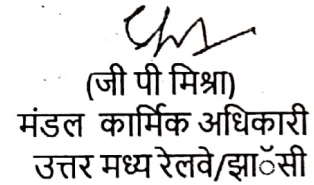 (जी पी मिश्रा)
मंडल कार्मिक अधिकारी
उत्तर मध्य रेलवे/झाॅसी